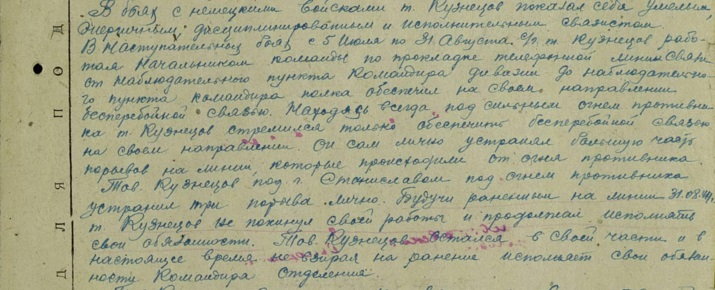 В боях с немецкими войсками т. Кузнецов показал себя умелым,
энергичным, дисциплинированным и исполнительным связистом.
В наступательных боях с 5 Июля по 31 Августа с/г т. Кузнецов рабо-
тая Начальником команды по прокладке телефонной линии связи
от наблюдательного пункта Командира дивизии до наблюдательно-
го пункта командира полка обеспечил на своем направлении
бесперебойной связью. Находясь всегда под сильным огнем противни-
ка т. Кузнецов стремился только обеспечить бесперебойной связью
на своем направлении. Он сам лично устранял большую часть
порывов на линии, которые происходили от огня противника.
Тов. Кузнецов под г. Станиславом под огнем противника
устранил три порыва лично. Будучи раненным на линии 31.08.44г.
т. Кузнецов не покинул своей работы и продолжал исполнять
свои обязанности. Тов. Кузнецов остался в своей части и в
настоящее время не взирая на ранение исполняет свои обязан-
ности Командира Отделения.
Д Л Я П О Д